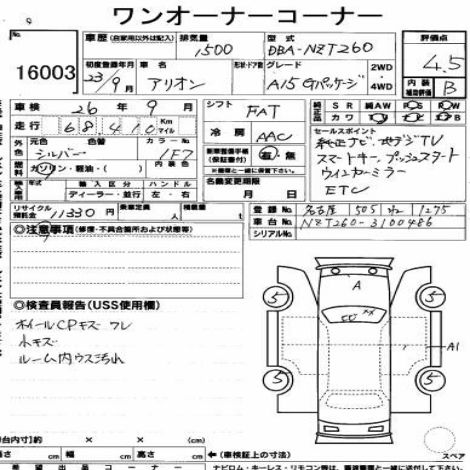 ワンオーナーコーナー
16003
車歴 (自家用以外は記入)
排気量 1500
型式 DBA-NZT260
評価点 4.5
初度登録年月 23/9月
車名 アリオン
形状・ドア数
グレード A15 Gパッケージ
2WD
4WD
内装 補助評価 B
車検 26年 9月
シフト FAT
純正品 SR 純AW PS PW
カワ
走行 68,410 Km マイル
冷房 AAC
セールスポイント
純正ナビ 地デジTV
スマートキー プッシュスタート
ウインカーミラー
ETC
外色 元色 シルバー
色替
カラーNo 1F7
車両整備手帳(保証書付) 有・無
※備考欄に保管して下さい
燃料 ガソリン・軽油・( )
名義変更期限 月 日
年式 輸入区分 ハンドル
ディーラー・並行 左・右
リサイクル預託金 11330円
乗車定員 人
積載量
登録No. 名古屋 505 1275
車台No. NZT260-3100486
シリアルNo.
◎注意事項 (修復・不具合箇所および状態等)
◎検査員報告 (USS使用欄)
ホイールCPキズ ワレ
小キズ
ルーム内ウス汚れ
A
5
5
5
5
A1
スペア
荷台内寸) × × (cm)
長さ cm 幅 cm 高さ cm
↑(車検証上の寸法)
希望出品コーナー